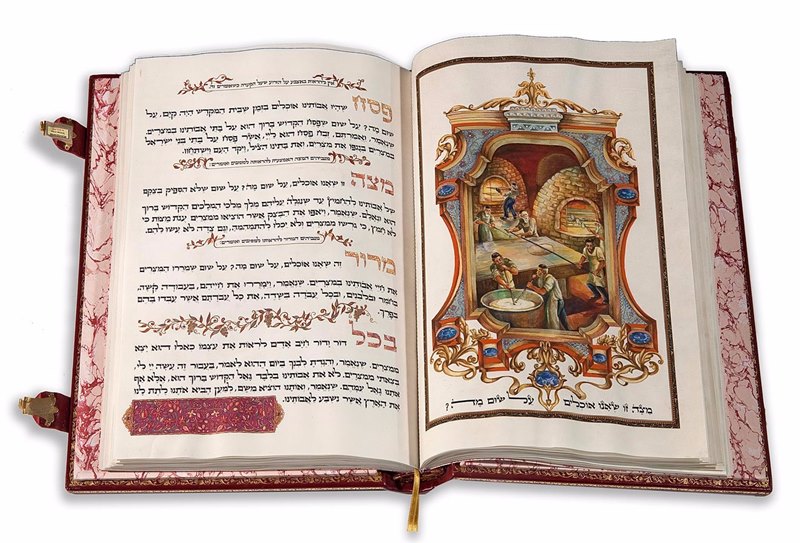 אין להראות באצבע על הזרוע שעל הקערה כשאומרים זה.
פסח שהיו אבותינו אוכלים בזמן שבית המקדש היה קים, על
שום מה? על שום שפסח הקדוש ברוך הוא על בתי אבותינו במצרים.
שנאמר, ואמרתם, זבח פסח הוא ליי, אשר פסח על בתי בני ישראל
במצרים בנגפו את מצרים, ואת בתינו הציל, ויקד העם וישתחוו.
מגביהים המצה האמצעית להראותה למסובים ואומרים:
מצה זו שאנו אוכלים, על שום מה? על שום שלא הספיק בצקם
של אבותינו להחמיץ עד שנגלה עליהם מלך מלכי המלכים הקדוש ברוך
הוא וגאלם. שנאמר, ויאפו את הבצק אשר הוציאו ממצרים עגת מצות כי
לא חמץ, כי גרשו ממצרים ולא יכלו להתמהמה, וגם צדה לא עשו להם.
מגביהים המרור להראותו למסובים ואומרים:
מרור זה שאנו אוכלים, על שום מה? על שום שמררו המצרים
את חיי אבותינו במצרים. שנאמר, וימררו את חייהם, בעבודה קשה,
בחמר ובלבנים, ובכל עבדה בשדה, את כל עבדתם אשר עבדו בהם
בפרך.
בכל דור ודור חיב אדם לראות את עצמו כאלו הוא יצא
ממצרים. שנאמר, והגדת לבנך ביום ההוא לאמר, בעבור זה עשה יי לי,
בצאתי ממצרים. לא את אבותינו בלבד גאל הקדוש ברוך הוא, אלא אף
אתנו גאל עמהם. שנאמר, ואותנו הוציא משם, למען הביא אתנו לתת לנו
את הארץ אשר נשבע לאבותינו.
מצה זו שאנו אוכלים על שום מה?